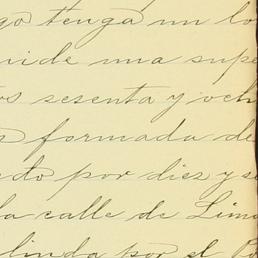 go tenga un lo
mide una supe
os sesenta y och
formada de
do por diez y se
la calle de Lima
linda por el Po